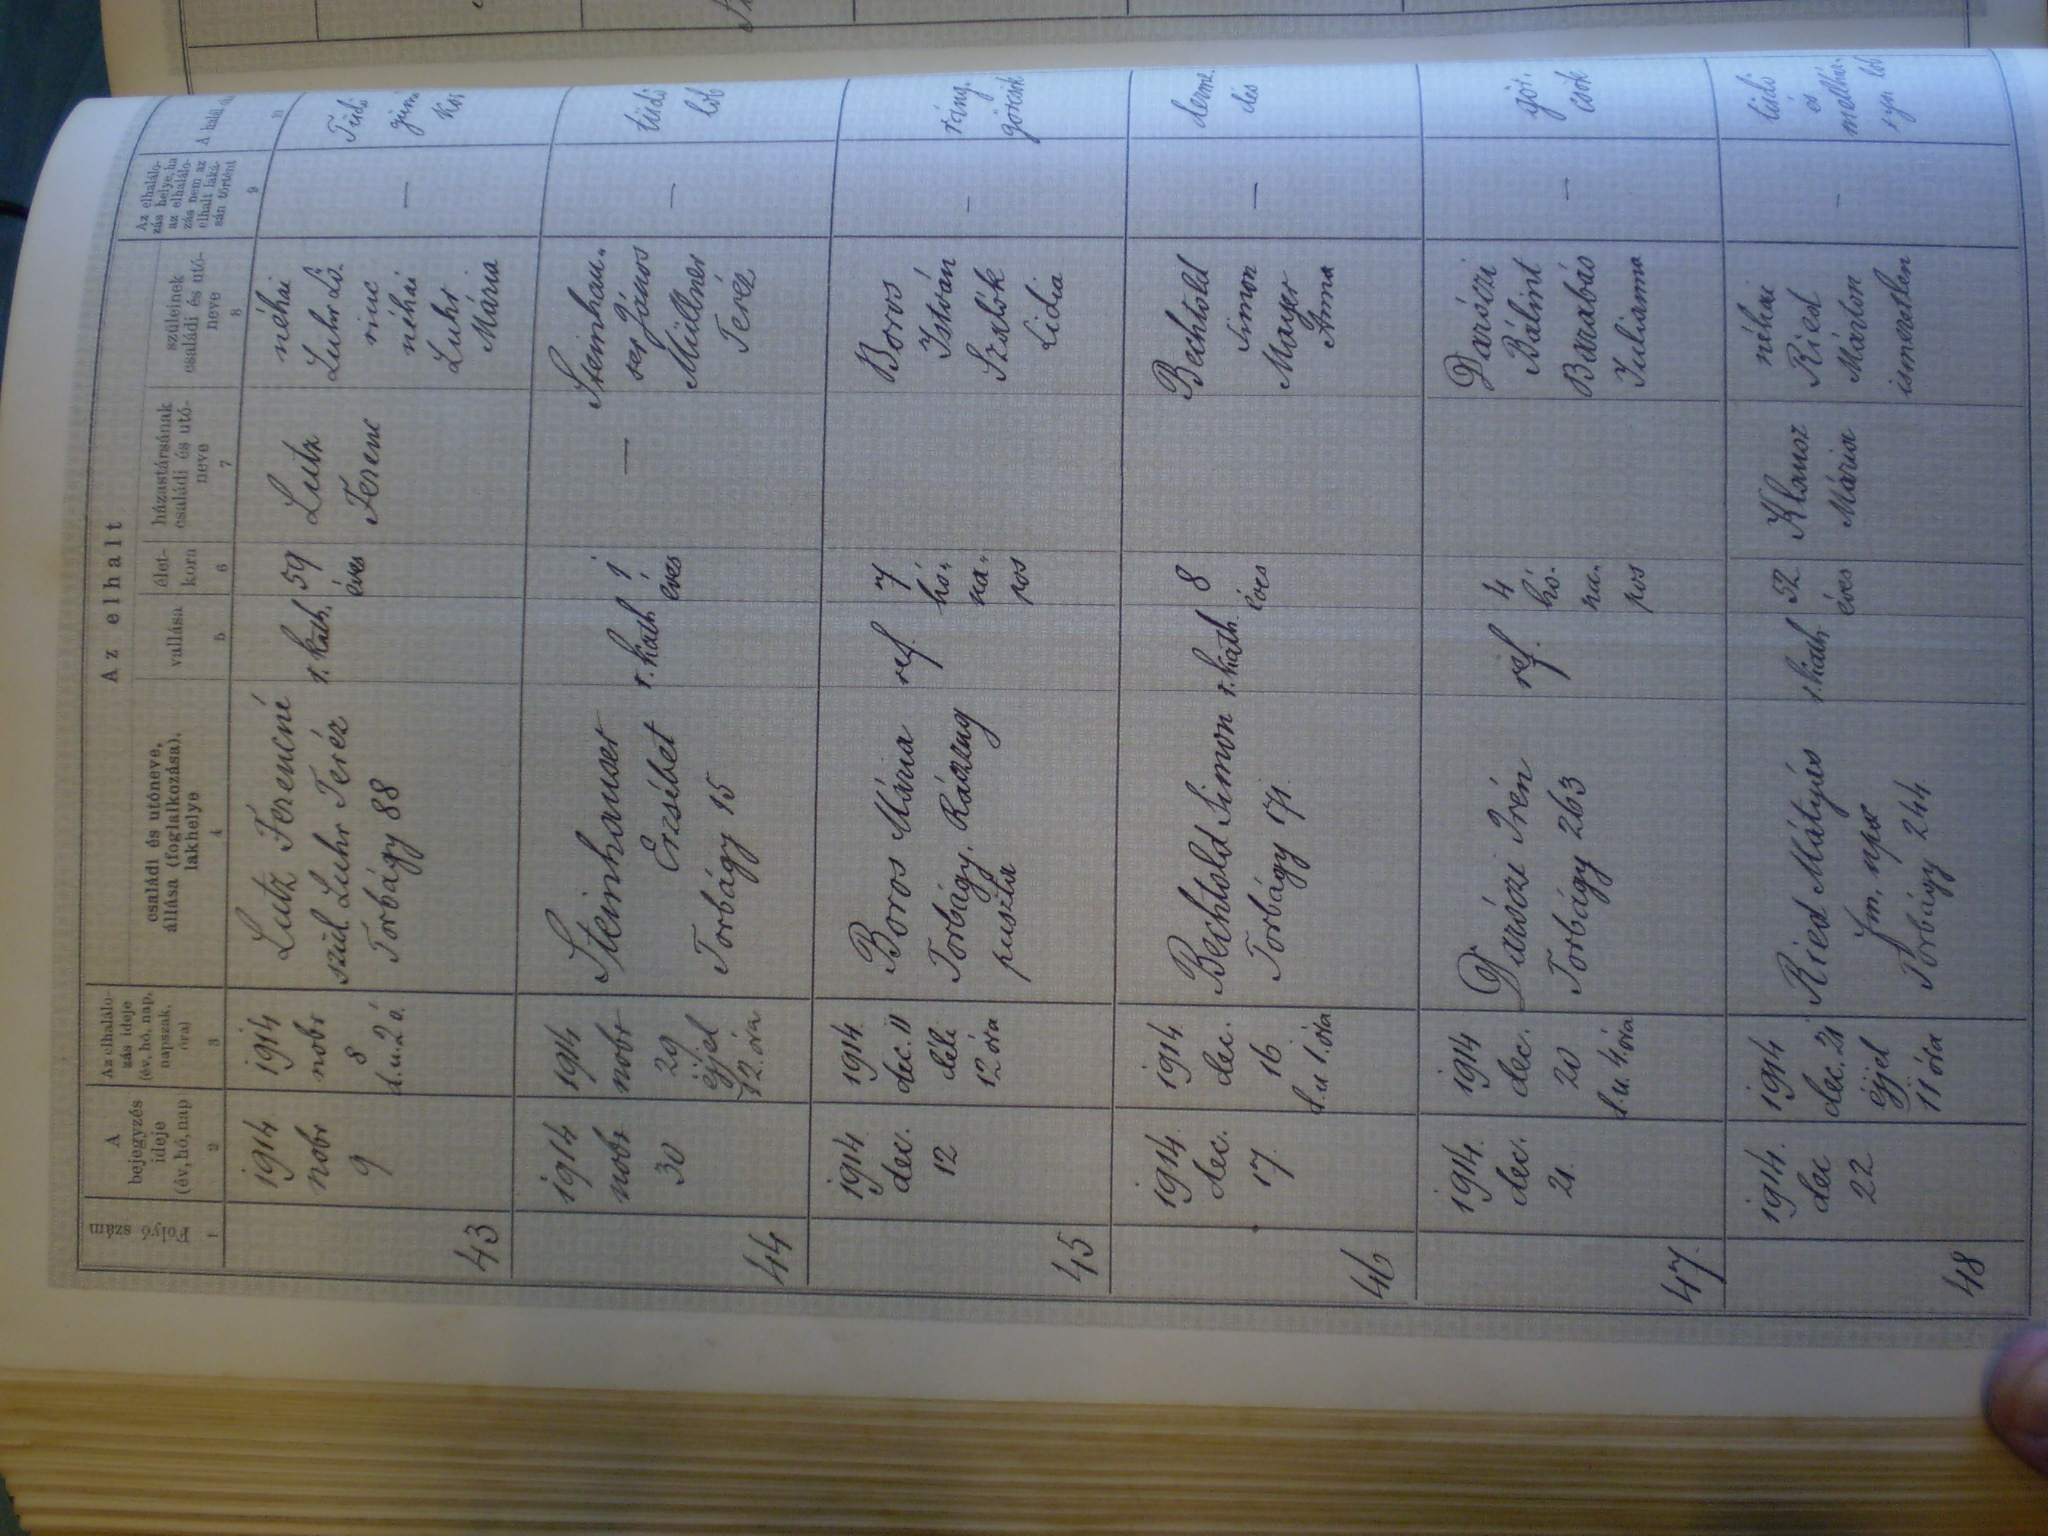 Az elhalt
Folyó szám
A
bejegyzés
ideje
(év, hó, nap)
Az elhalálo-
zás ideje
(év, hó, nap,
napszak,
óra)
családi és utóneve,
állása (foglalkozása),
lakhelye
vallása
élet-
kora
házastársának
családi és utó-
neve
szüleinek
családi és utó-
neve
Az elhalálo-
zás helye, ha
az elhalálo-
zás nem az
elhalt laká-
sán történt
A halál
1
2
3
4
5
6
7
8
9
10
43
1914
nobr
9
1914
nobr
8
d.u. 2 ó.
Lutz Ferencné
szül. Luhr Teréz
Torbágy 88
r. kath.
59
éves
Lutz
Ferenc
néhai
Luhr Lő-
rinc
néhai
Luhr
Mária
—
Tüdő
güm
kór
44
1914
nobr
30
1914
nobr
29
éjjel
12. óra
Steinhauser
Erzsébet
Torbágy 15
r. kath
1
éves
—
Steinhau-
ser János
Millner
Teréz
—
tüdő
lob
45
1914.
dec.
12
1914.
dec. 11
déli
12 óra
Boros Mária
Torbágy.
puszta
ref.
7
hó-
na-
pos
Boros
István
Szalók
Lidia
—
ráng.
görcsök
46
1914.
dec.
17.
1914
dec.
16
d.u 1. óra
Bechtold Simon
Torbágy 171.
r. kath.
8
éves
Bechtold
Simon
Mayer
Anna
—
derme-
dés
47.
1914.
dec.
21.
1914
dec.
20
d.u. 4. óra
Daróczi Irén
Torbágy 263
ref.
4
hó-
na-
pos
Daróczi
Bálint
Barabás
Julianna
—
gör-
csök
48
1914.
dec
22
1914
dec. 21
éjjel
11 óra
Ried Mátyás
fm. nps
Torbágy 244.
r. kath.
52.
éves
Klausz
Mária
néhai
Ried
Márton
ismeretlen
—
tüdő
és
mellhár-
tya lob